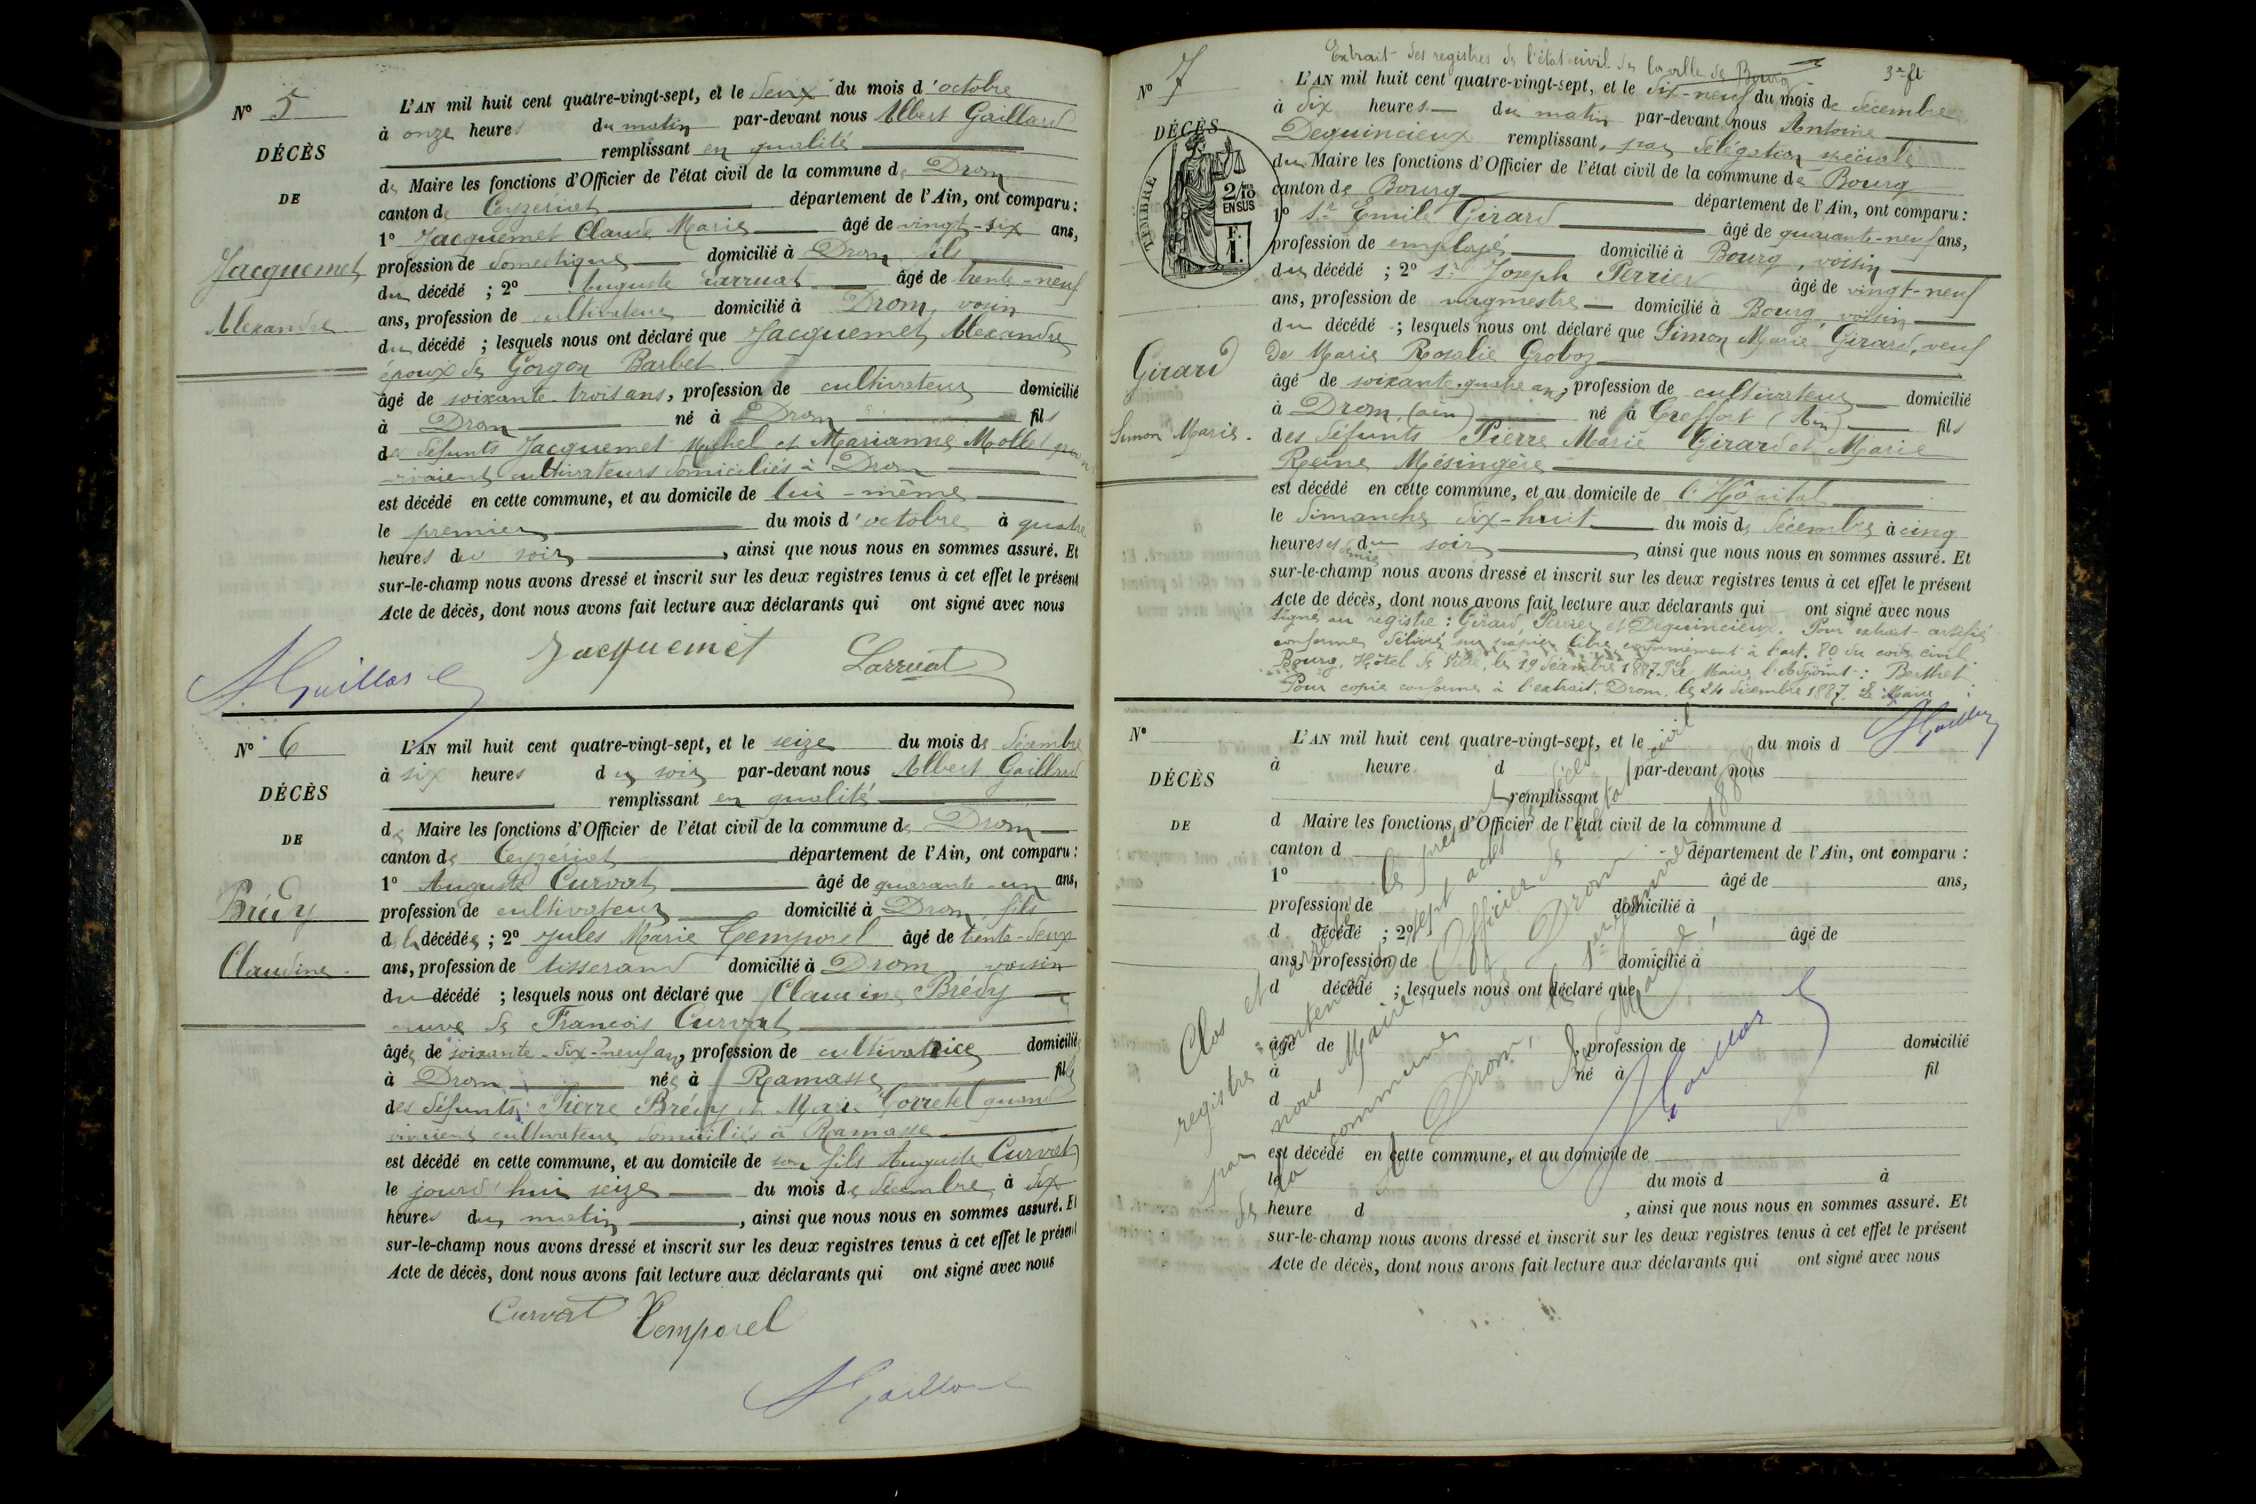 N° 5
DÉCÈS
DE
Jacquemet
Alexandre
L'AN mil huit cent quatre-vingt-sept, et le deux du mois d'octobre
à onze heures du matin par-devant nous Albert Gaillard
remplissant en qualité
de Maire les fonctions d'Officier de l'état civil de la commune de Drom
canton de Ceyzeriat département de l'Ain, ont comparu :
1° Jacquemet Claude Marie âgé de vingt-six ans,
profession de domestique domicilié à Drom fils
du décédé ; 2° Auguste Larruat âgé de trente-neuf
ans, profession de cultivateur domicilié à Drom, voisin
du décédé ; lesquels nous ont déclaré que Jacquemet Alexandre
époux de Gorgon Barbet
âgé de soixante-trois ans, profession de cultivateur domicilié
à Drom né à Drom fils
de défunts Jacquemet Michel et Marianne Mollet quand
vivaient cultivateurs domiciliés à Drom
est décédé en cette commune, et au domicile de lui-même
le premier du mois d'octobre à quatre
heures du soir, ainsi que nous nous en sommes assuré. Et
sur-le-champ nous avons dressé et inscrit sur les deux registres tenus à cet effet le présent
Acte de décès, dont nous avons fait lecture aux déclarants qui ont signé avec nous
Jacquemet Larruat
A. Gaillard
N° 6
DÉCÈS
DE
Brédy
Claudine
L'AN mil huit cent quatre-vingt-sept, et le seize du mois de décembre
à six heures du soir par-devant nous Albert Gaillard
remplissant en qualité
de Maire les fonctions d'Officier de l'état civil de la commune de Drom
canton de Ceyzériat département de l'Ain, ont comparu :
1° Auguste Curvat âgé de quarante-un ans,
profession de cultivateur domicilié à Drom, fils
de la décédée ; 2° Jules Marie Temporel âgé de trente-deux
ans, profession de tisserand domicilié à Drom voisin
du décédé ; lesquels nous ont déclaré que Claudine Brédy
veuve de François Curvat
âgée de soixante-dix-neuf ans, profession de cultivatrice domiciliée
à Drom née à Ramasse fille
des défunts Pierre Brédy et Marie Gorretel quand
vivaient cultivateurs domiciliés à Ramasse
est décédé en cette commune, et au domicile de son fils Auguste Curvat
le jourd'hui seize du mois de décembre à dix
heures du matin, ainsi que nous nous en sommes assuré. Et
sur-le-champ nous avons dressé et inscrit sur les deux registres tenus à cet effet le présent
Acte de décès, dont nous avons fait lecture aux déclarants qui ont signé avec nous
Curvat Temporel
A Gaillard
Extrait des registres de l'état civil de la ville de Bourg
N° 7
DÉCÈS
TIMBRE
2/10 EN SUS
F. 1.
Girard
Simon Marie.
L'AN mil huit cent quatre-vingt-sept, et le dix-neuf du mois de décembre
à dix heures du matin par-devant nous Antoine
Dequincieux remplissant, par délégation spéciale
du Maire les fonctions d'Officier de l'état civil de la commune de Bourg
canton de Bourg département de l'Ain, ont comparu :
1° sr Emile Girard âgé de quarante-neuf ans,
profession de employé domicilié à Bourg, voisin
du décédé ; 2° sr Joseph Perrier âgé de vingt-neuf
ans, profession de vagmestre domicilié à Bourg, voisin
du décédé ; lesquels nous ont déclaré que Simon Marie Girard, veuf
de Marie Rosalie Groboz
âgé de soixante-quatre ans, profession de cultivateur domicilié
à Drom (ain) né à Treffort (Ain) fils
des défunts Pierre Marie Girard et Marie
Reine Mésingère
est décédé en cette commune, et au domicile de l'Hôpital
le dimanche dix-huit du mois de décembre à cinq
heures et demie du soir, ainsi que nous nous en sommes assuré. Et
sur-le-champ nous avons dressé et inscrit sur les deux registres tenus à cet effet le présent
Acte de décès, dont nous avons fait lecture aux déclarants qui ont signé avec nous
signé au registre : Girard, Perrier et Dequincieux. Pour extrait certifié
conforme délivré sur papier libre conformément à l'art. 80 du code civil.
Bourg, Hôtel de Ville, le 19 décembre 1887. Le Maire, l'adjoint : Berthet
Pour copie conforme à l'extrait. Drom, le 24 décembre 1887. Le Maire
A Gaillard
N°
DÉCÈS
DE
L'AN mil huit cent quatre-vingt-sept, et le du mois d
à heure d par-devant nous
remplissant
d Maire les fonctions d'Officier de l'état civil de la commune d
canton d département de l'Ain, ont comparu :
1° âgé de ans,
profession de domicilié à
d décédé ; 2° âgé de
ans, profession de domicilié à
d décédé ; lesquels nous ont déclaré que
âgé de , profession de domicilié
à né à fil
d
est décédé en cette commune, et au domicile de
le du mois d à
heure d , ainsi que nous nous en sommes assuré. Et
sur-le-champ nous avons dressé et inscrit sur les deux registres tenus à cet effet le présent
Acte de décès, dont nous avons fait lecture aux déclarants qui ont signé avec nous
Clos et arrêté le présent
registre contenant sept actes de décès
par nous Maire Officier de l'état civil
de la commune de Drom
A Drom, le 1er janvier 1888
Le Maire,
A Gaillard